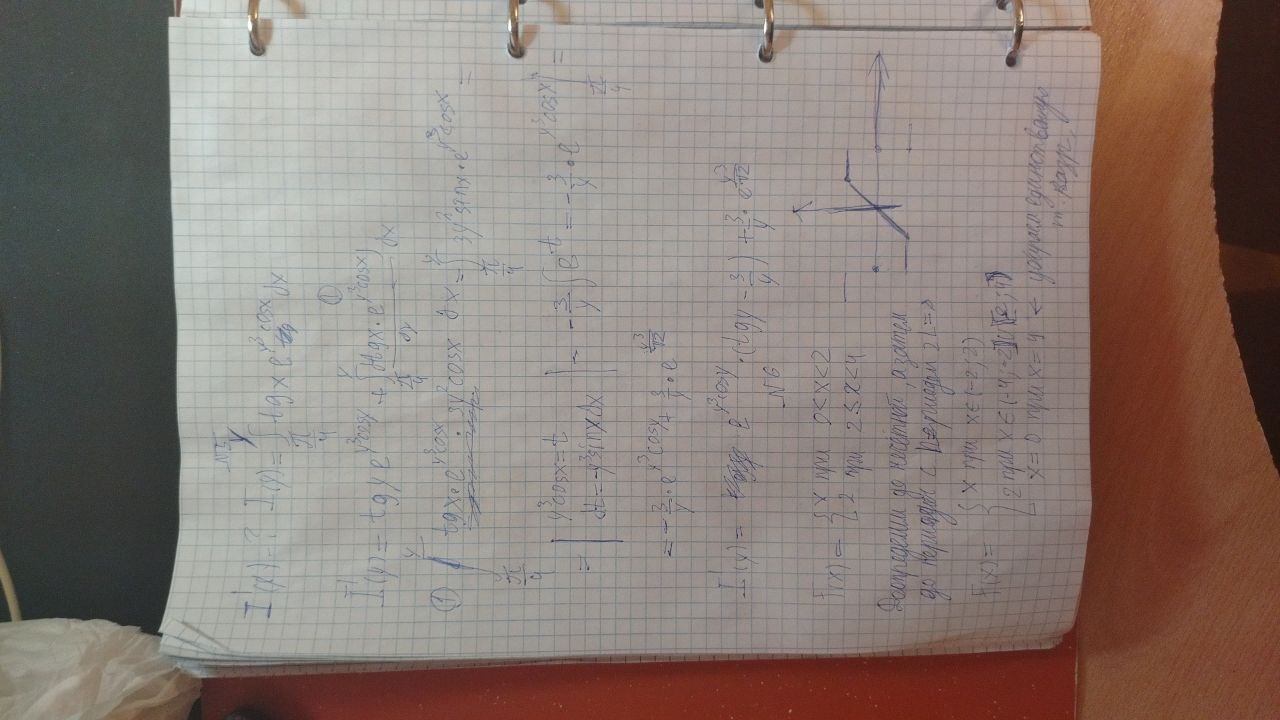 N5
I'(x) = ? I(y) = ∫_{π/4}^{y} tg x e^{y³cosx} dx
①
I'(y) = tg y e^{y³cosx} + ∫_{π/4}^{y} (tgx · e^{y³cosx})/dy dx
① ∫_{π/4}^{y} tgx · e^{y³cosx} · 3y² cosx dx = ∫_{π/4}^{y} 3y² sinx · e^{y³cosx} =
= | y³cosx = t
dt = -y³sinxdx | = -3/y ∫ e^t = -3/y · e^{y³cosx} |_{π/4}^{y} =
= -3/y · e^{y³cosy} + 3/y · e^{y³/√2}
I'(y) = e^{y³cosy} · (tgy - 3/y) + 3/y · e^{y³/√2}
N6
f(x) = { x при 0<x<2
2 при 2≤x<4
до нечётной, а затем
до периодич с периодом 2l =>
f(x) = { x при x∈(-2;2)
2 при x∈(-4;-2]∪[2;4)
x=0 при x=4 ←